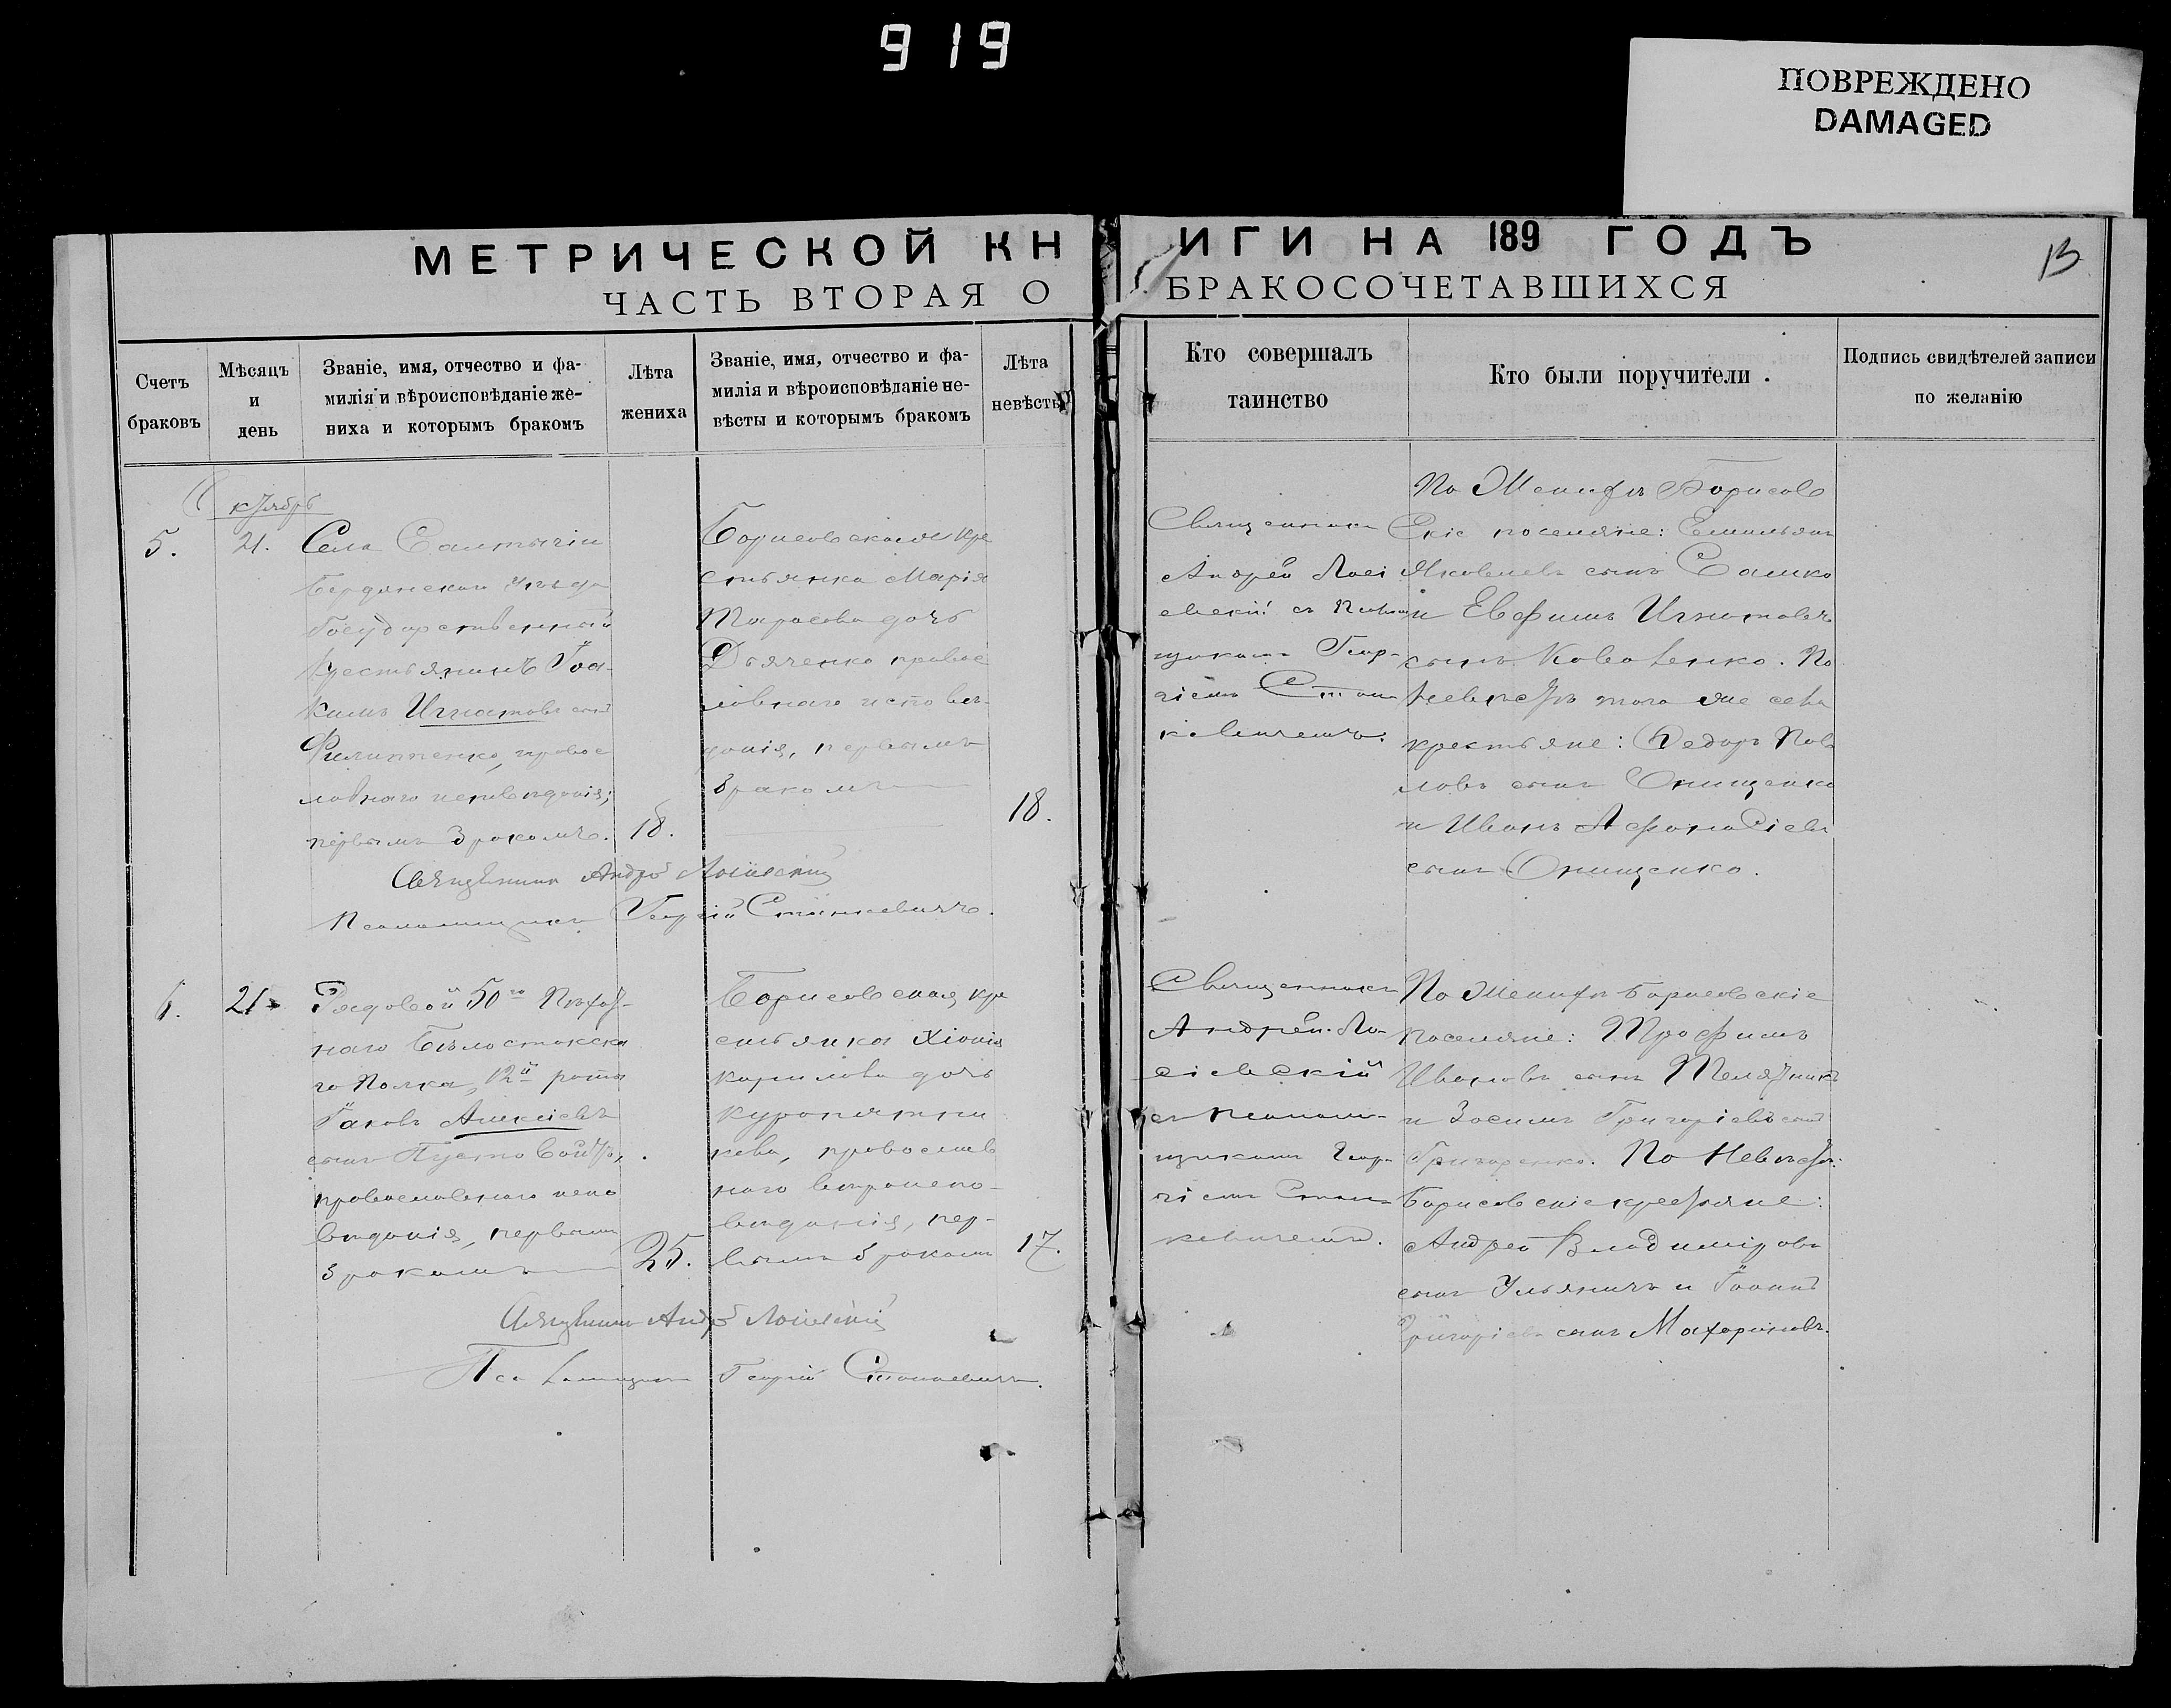 919
ПОВРЕЖДЕНО
DAMAGED
МЕТРИЧЕСКОЙ КН
ИГИ НА 189 ГОДЪ
13
ЧАСТЬ ВТОРАЯ О
БРАКОСОЧЕТАВШИХСЯ
Счетъ
браковъ
Мѣсяцъ
и
день
Званіе, имя, отчество и фа-
милія и вѣроисповѣданіе же-
ниха и которымъ бракомъ
Лѣта
жениха
Званіе, имя, отчество и фа-
милія и вѣроисповѣданіе не-
вѣсты и которымъ бракомъ
Лѣта
невѣсты
Кто совершалъ
таинство
Кто были поручители.
Подпись свидѣтелей записи
по желанію
5.
21.
Села Салтычіи
Бердянскаго уѣзда
Государственный
Крестьянинъ Іоа-
кимъ Игнатовъ сынъ
Филиппенко, правос
лавнаго исповѣданія;
первымъ бракомъ.
18.
Борисовская кре
стьянка Марія
Тарасова дочь
Дьяченко правос
лавнаго исповѣ-
данія, первымъ
бракомъ
18.
Священникъ
Андрей Лосі
евскій съ Псалом
щикомъ Геор-
гіемъ Стан
кевичемъ.
По Женихѣ Борисов
скіе поселяне: Емельянъ
Яковлевъ сынъ Сашко
и Евфимъ Игнатовъ
сынъ Коваленко. По
Невѣстѣ того же села
крестьяне: Федоръ Пав
ловъ сынъ Онищенко
и Иванъ Афанасіевъ
сынъ Онищенко.
Священникъ Андрей Лосіевскій
Псаломщикъ Георгій Станкевичъ.
6.
21
Рядовой 50го Пѣхот-
наго Бѣлостокска
го Полка, 12й роты
Іаковъ Алексіевъ
сынъ Пустовойтъ,
православнаго испо
вѣданія, первымъ
бракомъ
25.
Борисовская кре
стьянка Хіонія
Кирилова дочь
Куропятни
кова, православ
наго вѣроиспо-
вѣданія, пер-
вымъ бракомъ
17.
Священникъ
Андрей Ло-
сіевскій
съ Псалом-
щикомъ Геор-
гіемъ Стан-
кевичемъ.
По Женихѣ Борисовскіе
поселяне: Трофимъ
Ивановъ сынъ Телятникъ
и Зосимъ Григоріевъ сынъ
Григоренко. По Невѣстѣ:
Борисовскіе крестьяне:
Андрей Владиміровъ
сынъ Ульяничъ и Іоаннъ
Григоріевъ сынъ Махориновъ.
Священникъ Андрей Лосіевскій
Псаломщикъ Георгій Станкевичъ.